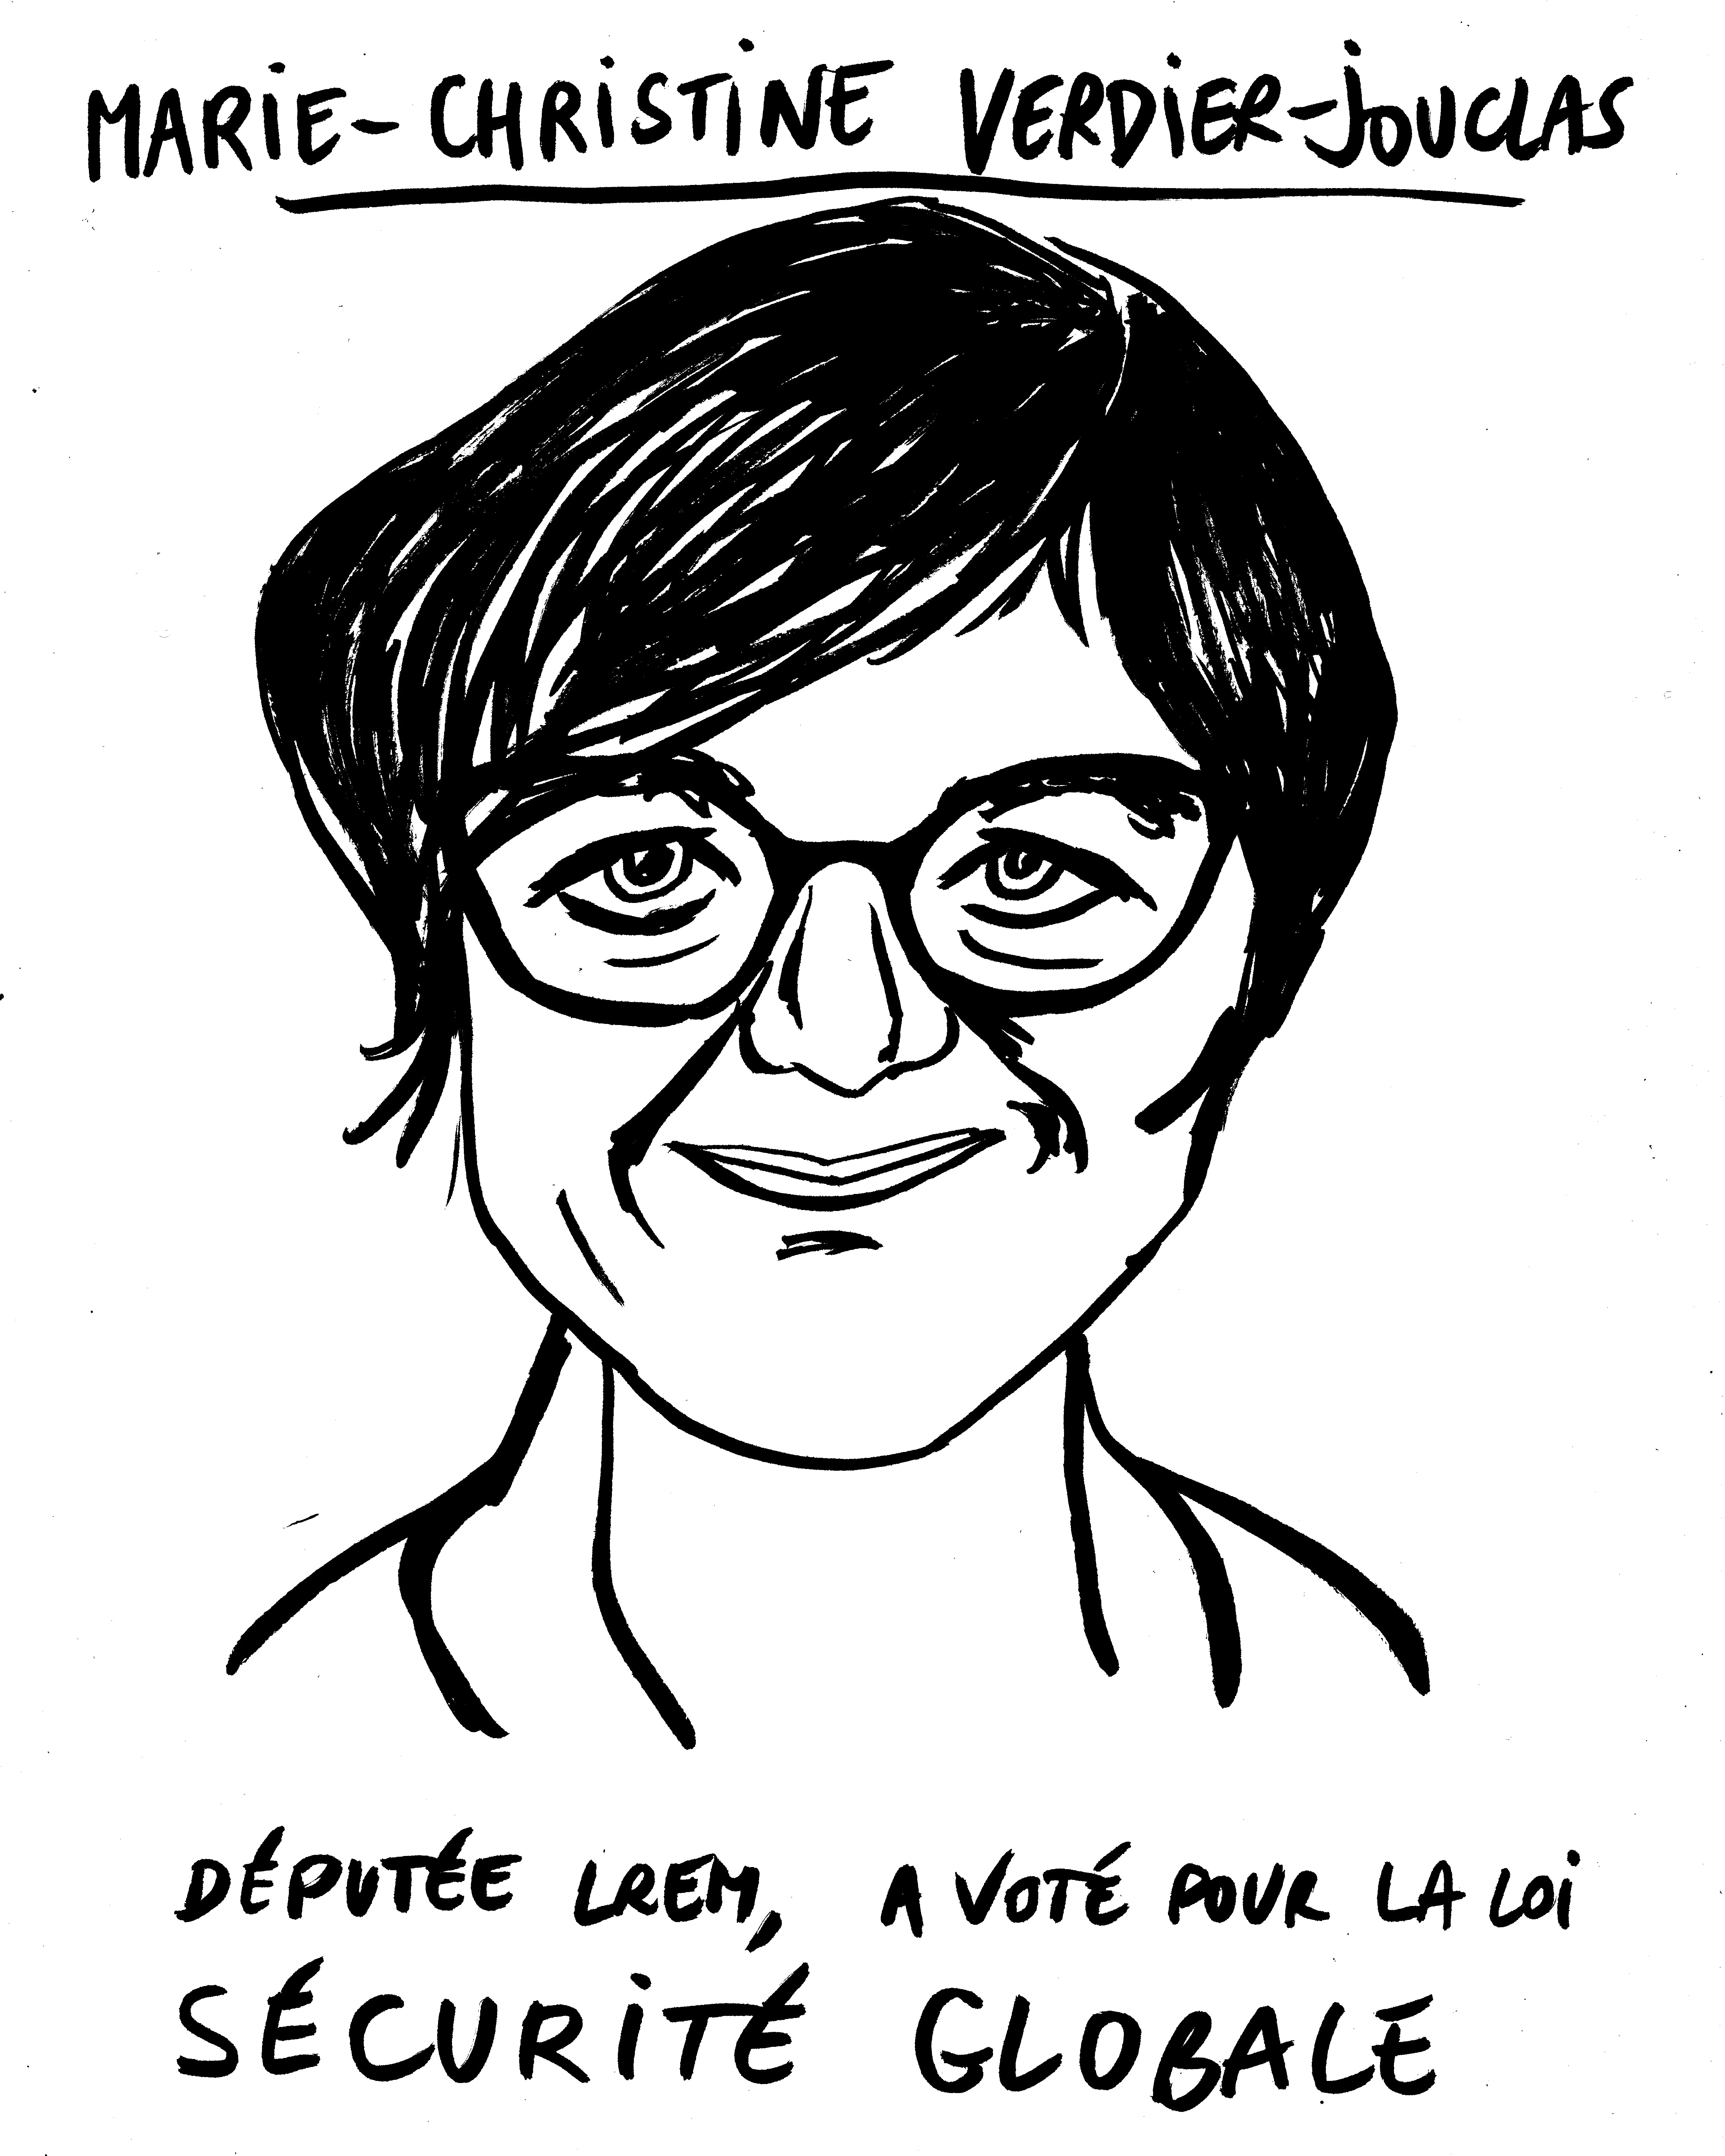 MARIE-CHRISTINE VERDIER-JOUCLAS
DÉPUTÉE LREM, A VOTÉ POUR LA LOI
SÉCURITÉ GLOBALE